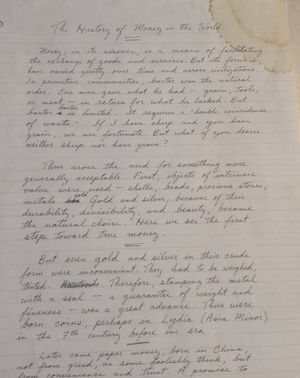 The History of Money in the World
Money, in its essence, is a means of facilitating
the exchange of goods and services. But its forms
have varied greatly over time and across civilizations.
In primitive communities, barter was the natural
order. One man gave what he had — grain, tools,
or meat — in return for what he lacked. But
barter is limited. It requires a "double coincidence
of wants." If I have sheep and you have
grain, we are fortunate. But what if you desire
neither sheep nor have grain?
Thus arose the need for something more
generally acceptable. First, objects of intrinsic
value were used — shells, beads, precious stones,
metals. Gold and silver, because of their
durability, divisibility, and beauty, became
the natural choice. Here we see the first
step toward true money.
But even gold and silver in their crude
form were inconvenient. They had to be weighed,
tested. Therefore, stamping the metal
with a seal — a guarantee of weight and
fineness — was a great advance. Thus were
born coins, perhaps in Lydia (Asia Minor)
in the 7th century before our era.
Later came paper money, born in China,
not from greed, as some foolishly think, but
from convenience and trust. A promise to